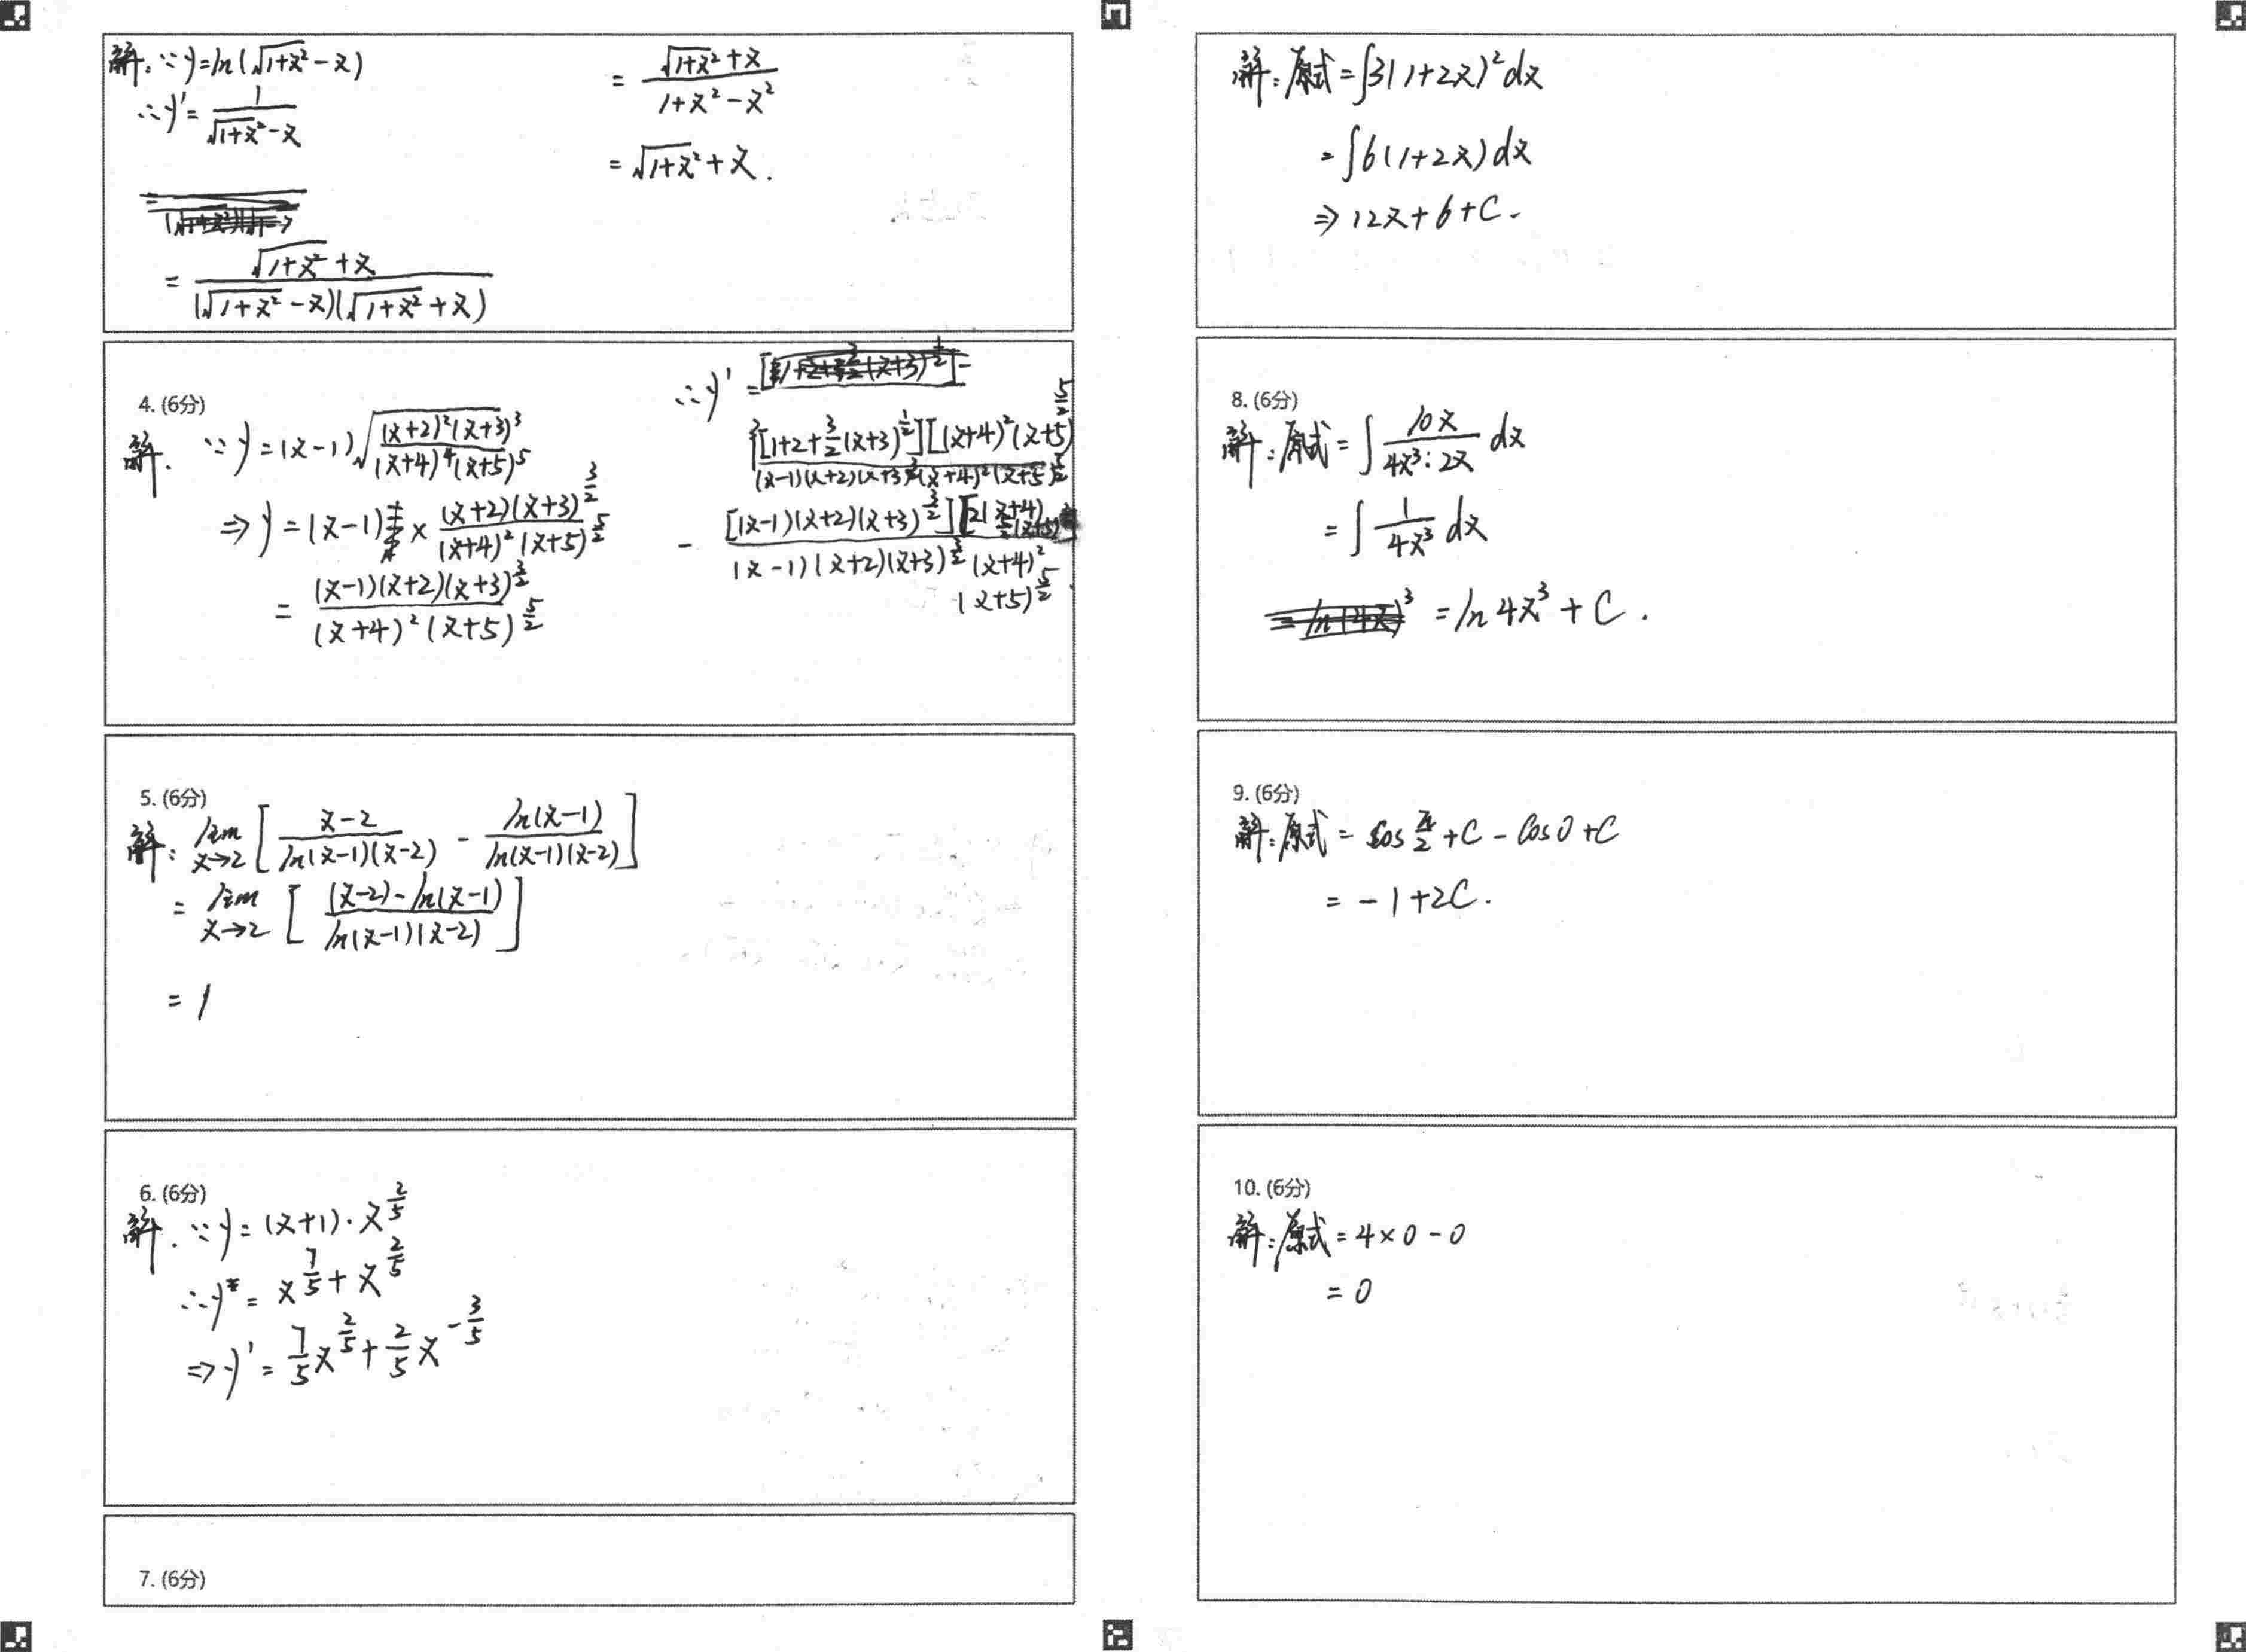 解:∵y=ln(√(1+x²)-x)
∴y'=1/(√(1+x²)-x)
=(√(1+x²)+x)/((√(1+x²)-x)(√(1+x²)+x))
=(√(1+x²)+x)/(1+x²-x²)
=√(1+x²)+x.
4. (6分)
解. ∵y=(x-1)√((x+2)²(x+3)³/((x+4)⁴(x+5)⁵))
⇒y=(x-1)×(x+2)(x+3)^(3/2)/((x+4)²(x+5)^(5/2))
=(x-1)(x+2)(x+3)^(3/2)/((x+4)²(x+5)^(5/2))
∴y'=
{[1+2+3/2(x+3)^(1/2)][(x+4)²(x+5)^(5/2)/(x-1)(x+2)(x+3)^(3/2)(x+4)²(x+5)^(5/2)
-[(x-1)(x+2)(x+3)^(3/2)][2(x+4)5/2(x+5)/(x-1)(x+2)(x+3)^(3/2)(x+4)²(x+5)^(5/2).
5. (6分)
解:lim x→2 [(x-2)/(ln(x-1)(x-2)) - ln(x-1)/(ln(x-1)(x-2))]
=lim x→2 [((x-2)-ln(x-1))/(ln(x-1)(x-2))]
=1
6. (6分)
解.∵y=(x+1)·x^(2/5)
∴y=x^(7/5)+x^(2/5)
⇒y'=7/5x^(2/5)+2/5x^(-3/5)
7. (6分)
解:原式=∫3(1+2x)²dx
=∫6(1+2x)dx
⇒12x+6+C.
8. (6分)
解:原式=∫10x/(4x³:2x) dx
=∫1/(4x³) dx
=ln4x³+C.
9. (6分)
解:原式=cos π/2+C-cos0+C
=-1+2C.
10. (6分)
解:原式=4×0-0
=0